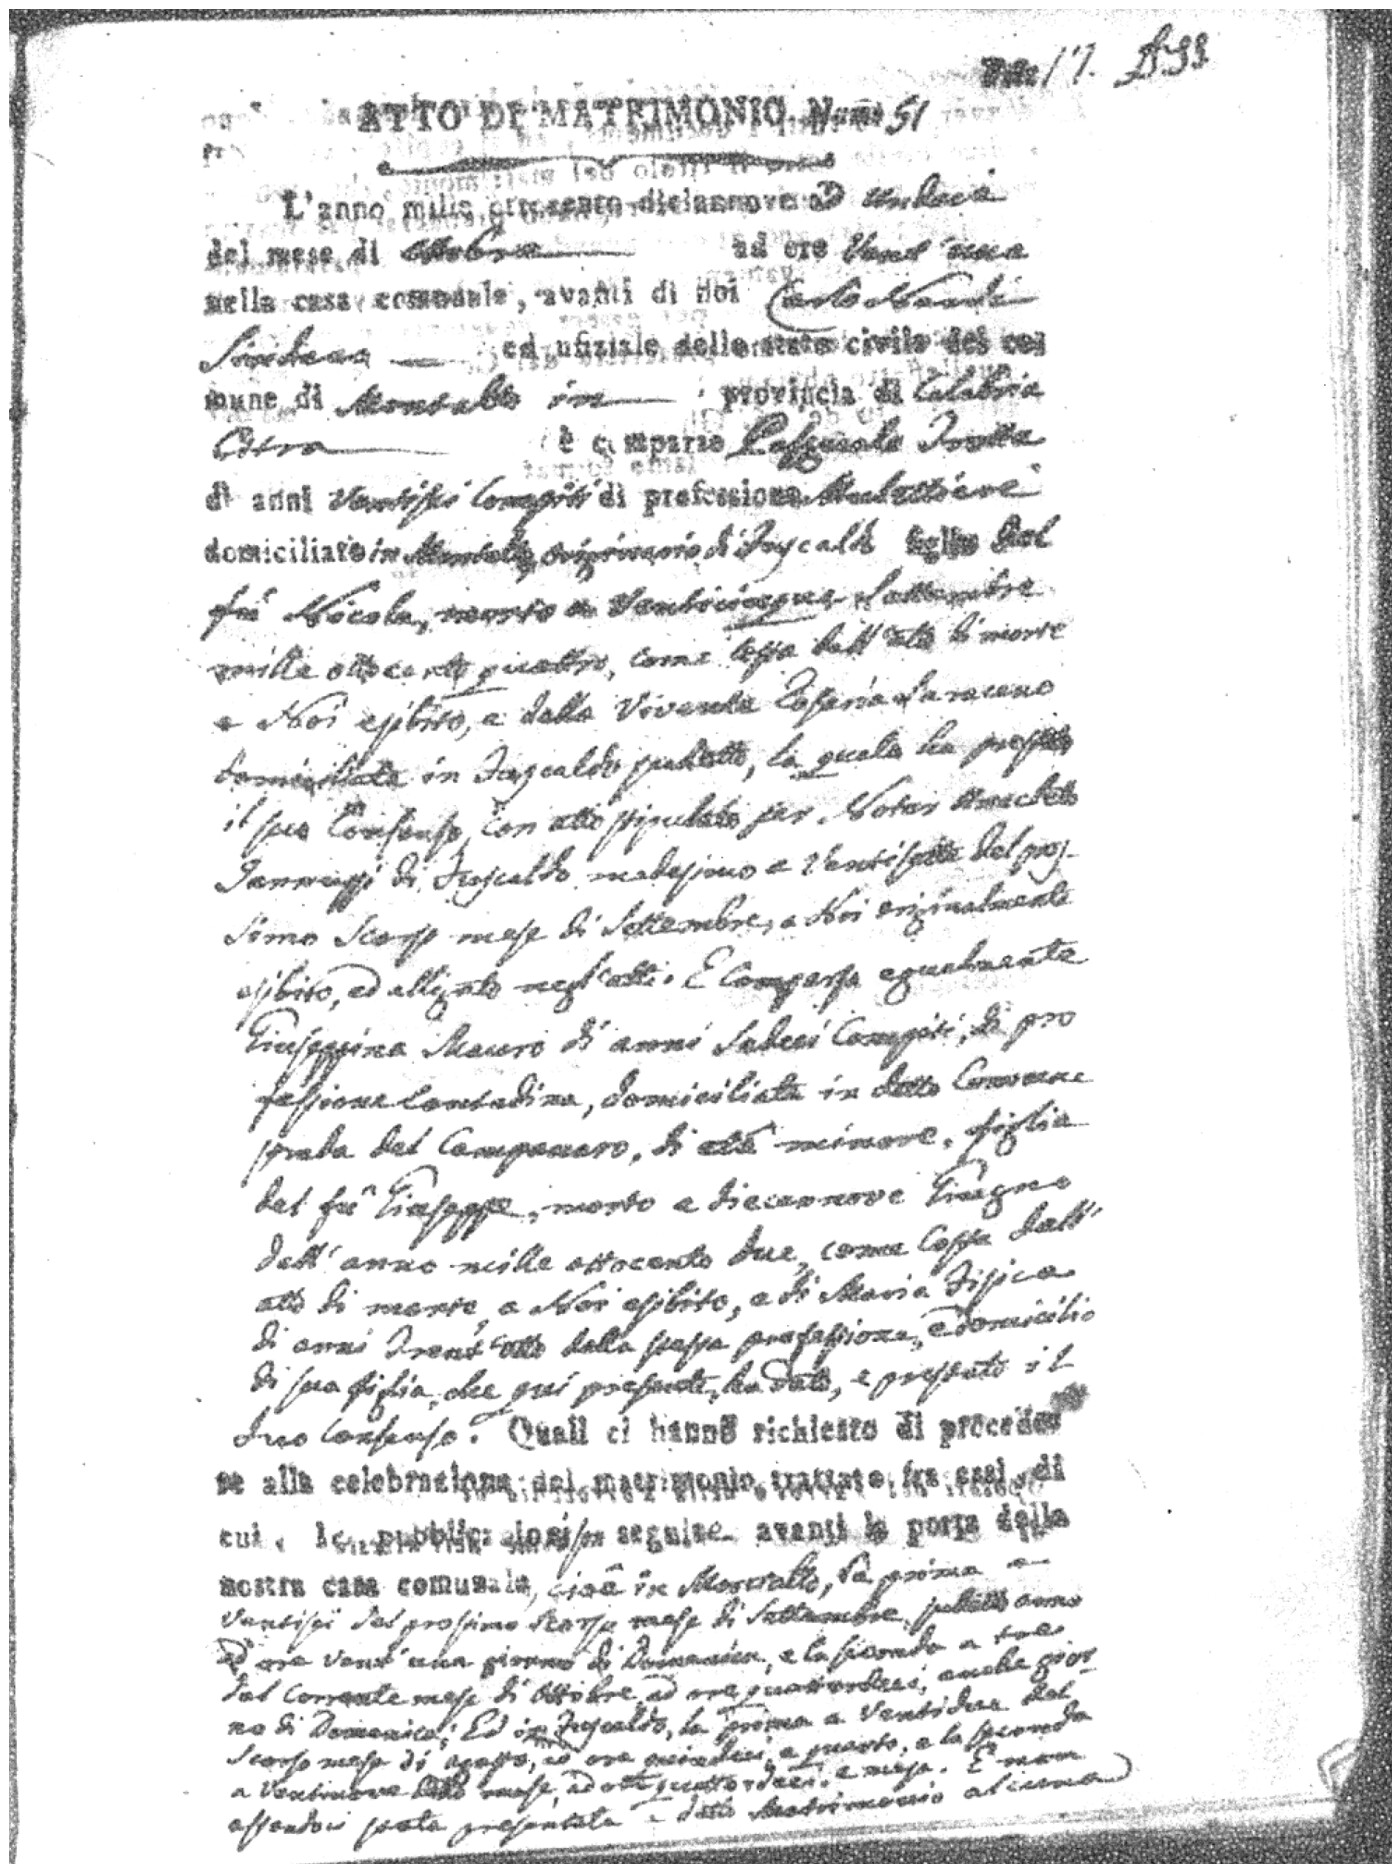 17.
ATTO DI MATRIMONIO Num. 51
L'anno mille ottocento dieciannove ad undeci
del mese di Ottobre ad ore vent'una
nella casa comunale, avanti di noi Carlo Nardi
Sindaco ed ufiziale dello stato civile del co-
mune di Montalto in provincia di Calabria
Citra è comparso Pasquale Trotta
di anni ventisei compiti di professione Mulattiere
domiciliato in Montalto, originario di Fuscaldo figlio del
fù Nicola, morto a venticinque Settembre
mille ottocento quattro, come costa dall'atto di morte
a Noi esibito, e della vivente Rosaria Saraceno
domiciliata in Fuscaldo sudetto, la quale ha prestato
il suo consenso, con atto stipulato per Notar
Jannuzzi di Fuscaldo medesimo a ventisette del pros-
simo scorso mese di Settembre, a Noi originalmente
esibito, ed alligato negl'atti. E comparsa egualmente
Giuseppina Mauro di anni sedeci compiti, di pro
fessione contadina, domiciliata in detto Comune
strada del Campanaro, di età minore, figlia
del fù Giuseppe, morto a diecannove Giugno
dell'anno mille ottocento due, come costa dall'
atto di morte, a Noi esibito, e di Maria Fisica
di anni trent'otto della stessa professione, e domicilio
di sua figlia, che qui presente, ha dato, e prestato il
suo consenso. Quali ci hanno richiesto di procede-
re alla celebrazione del matrimonio trattato fra essi, di
cui le pubblicazioni seguite avanti la porta della
nostra casa comunale, cioè in Montalto, la prima a
ventisei del prossimo scorso mese di Settembre sudetto anno
ad ore vent'una giorno di Domenica, e la seconda a tre
del corrente mese di Ottobre ad ore quattordeci, anche gior-
no di Domenica; Ed in Fuscaldo, la prima a ventidue del
scorso mese di agosto, ad ore quindeci, e quarto, e la seconda
a ventinove detto mese, ad ore quattordeci e mezza. E non
essendoci stata presentata a detto Matrimonio alcuna